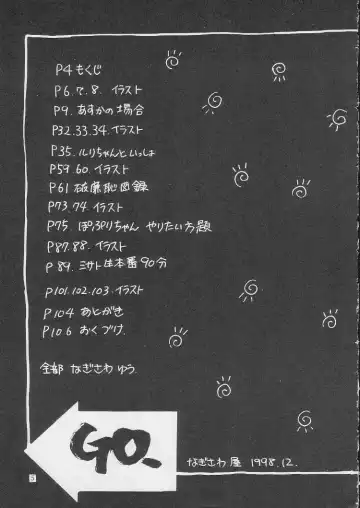 P4 もくじ
P6.7.8. イラスト
P9. あすかの場合
P32.33.34. イラスト
P35. ルリちゃんといっしょ
P59.60. イラスト
P61 破廉恥図録
P73.74 イラスト
P75. ぽぷりちゃん やりたい方題
P87.88. イラスト
P89. ミサト生本番90分
P101.102.103. イラスト
P104 あとがき
P106 おくづけ.
全部 なぎさわ ゆう
GO.
なぎさわ屋 1998.12.
3